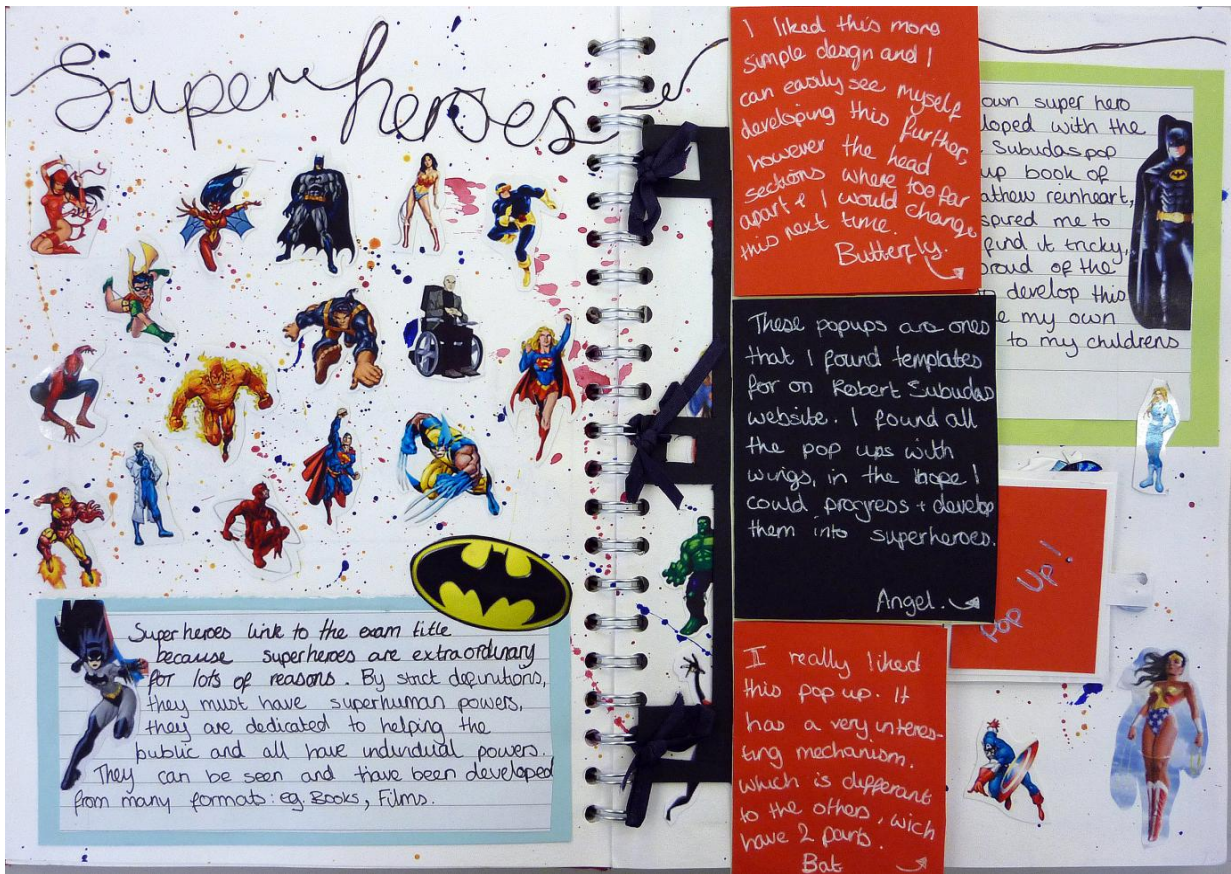 Superheroes
Superheroes link to the exam title
because superheroes are extraordinary
for lots of reasons. By strict definitions,
they must have superhuman powers,
they are dedicated to helping the
public and all have individual powers.
They can be seen and have been developed
from many formats: eg. Books, Films.
I liked this more
simple design and I
can easily see myself
developing this further,
however the head
sections where too far
apart & I would change
this next time.
Butterfly.
These popups are ones
that I found templates
for on Robert Subudas
website. I found all
the pop ups with
wings, in the hope I
could progress + develop
them into superheroes.
Angel.
I really liked
this pop up. It
has a very interes-
ting mechanism.
which is differant
to the others, wich
have 2 parts.
Bat
own super hero
loped with the
Subudas pop
up book of
athew reinheart,
spired me to
find it tricky,
proud of the
develop this
e my own
to my childrens
Pop Up!